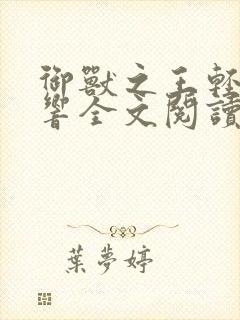 御獸之王輕
響全文閱讀
葉夢婷